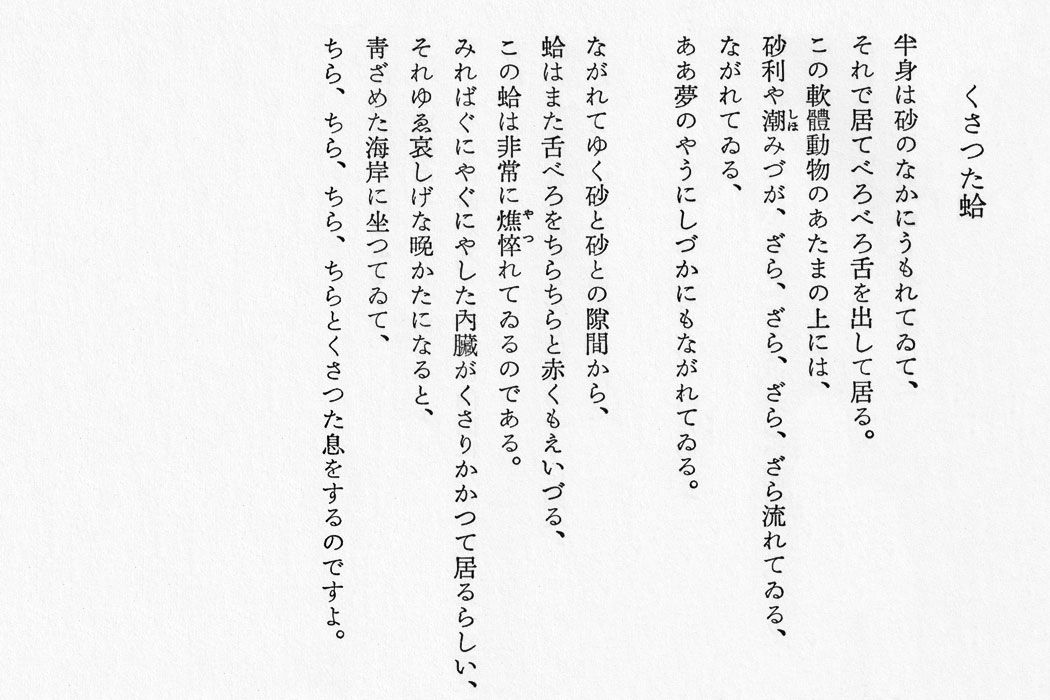 くさつた蛤
半身は砂のなかにうもれてゐて、
それで居てべろべろ舌を出して居る。
この軟體動物のあたまの上には、
砂利や潮みづが、ざら、ざら、ざら、ざら流れてゐる、
ながれてゐる、
ああ夢のやうにしづかにもながれてゐる。
ながれてゆく砂と砂との隙間から、
蛤はまた舌べろをちらちらと赤くもえいづる、
この蛤は非常に憔悴れてゐるのである。
みればぐにやぐにやした内臟がくさりかかつて居るらしい、
それゆゑ哀しげな晩かたになると、
靑ざめた海岸に坐つてゐて、
ちら、ちら、ちら、ちらとくさつた息をするのですよ。